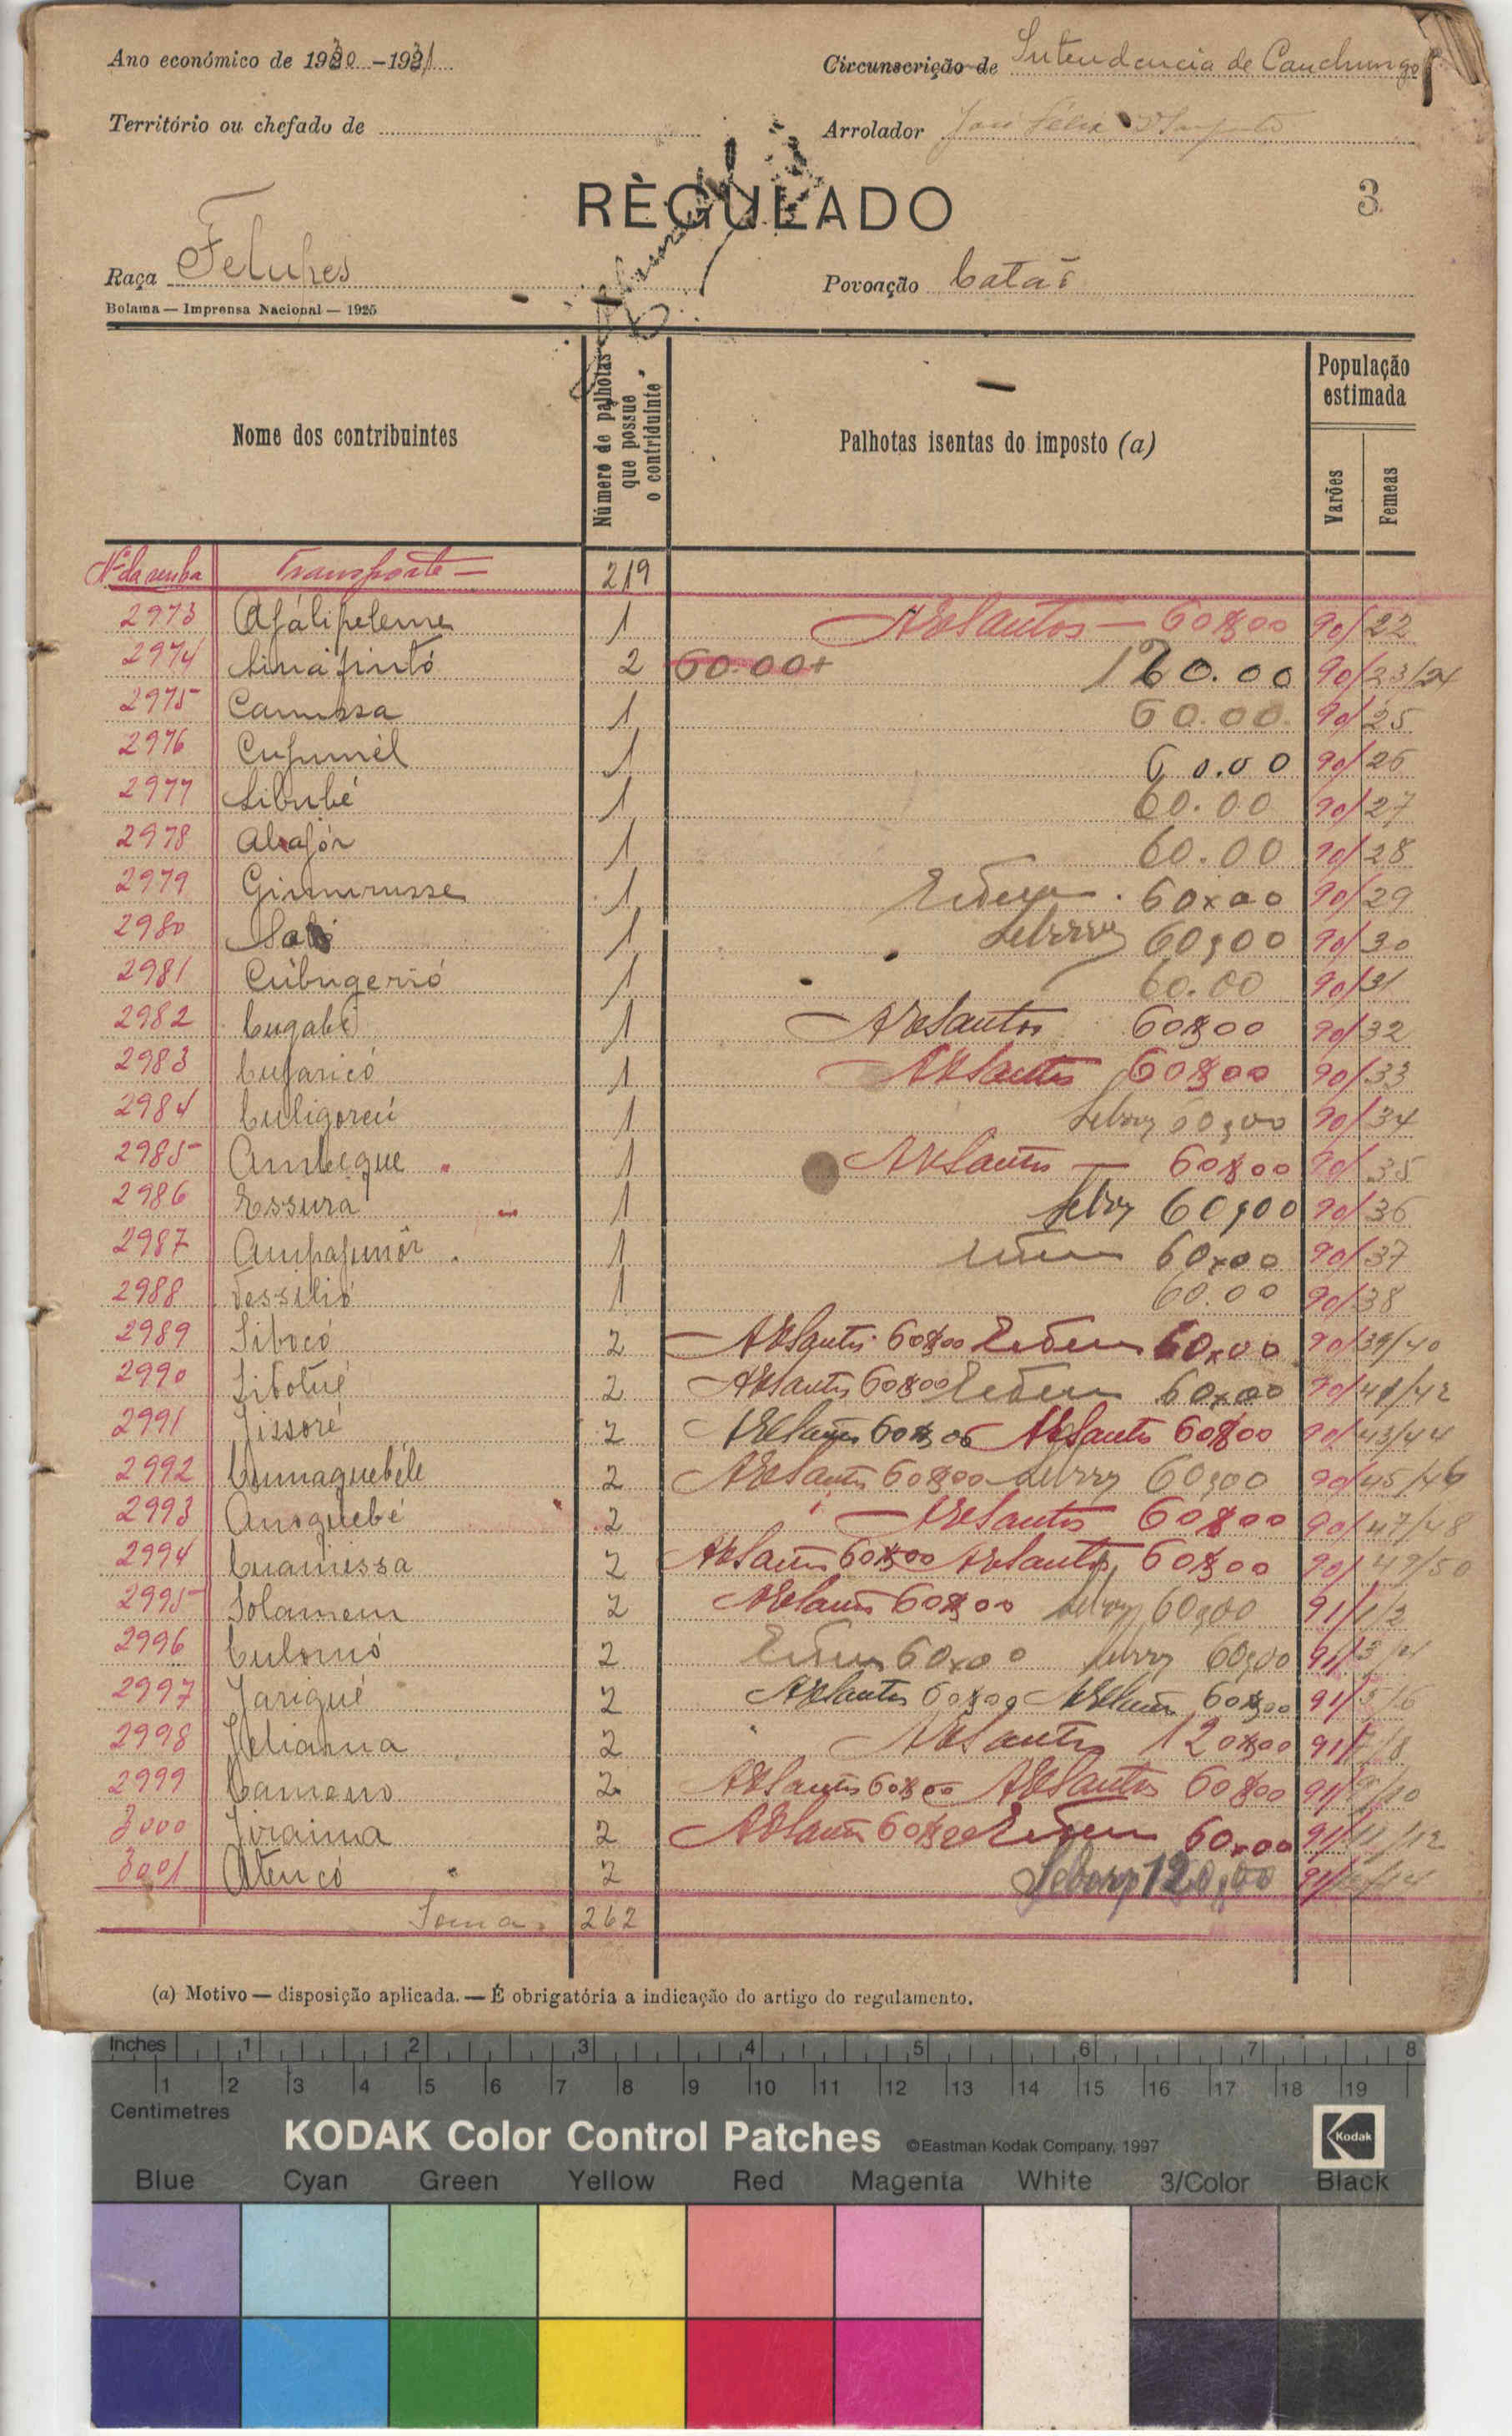 Ano económico de 1930-1931
Circunscrição de Intendencia de Canchungo
Território ou chefado de
Arrolador José Félix
RÈGULADO
3
Raça Felupes
Povoação Catão
Bolama — Imprensa Nacional — 1925
Nome dos contribuintes
Número de palhotas que possue o contriduinte
Palhotas isentas do imposto (a)
População estimada
Varões
Femeas
Nº da senha Transporte — 219
2973 Afálipeleme 1 ARSantos — 60$00 90/22
2974 2 60.00+ 120.00 90/23/24
2975 Camissa 1 60.00 90/25
2976 Cufumél 1 60.00 90/26
2977 Libubé 1 60.00 90/27
2978 Abajór 1 60.00 90/28
2979 Gimmusse 1 60x00 90/29
2980 1 60,00 90/30
2981 Cúbugerió 1 60.00 90/31
2982 Cugabé 1 ARSantos 60$00 90/32
2983 Cufaricó 1 ARSantos 60$00 90/33
2984 Culigoreú 1 60,00 90/34
2985 Ambeque 1 ARSantos — 60$00 90/35
2986 Essura 1 60,00 90/36
2987 Ampafumôr 1 60x00 90/37
2988 Fessilió 1 60.00 90/38
2989 Sibocó 2 ARSantos 60$00 60x00 90/39/40
2990 Sibotué 2 ARSantos 60$00 60x00 90/41/42
2991 Jissoré 2 ARSantos 60$00 ARSantos 60$00 90/43/44
2992 Cumaquebéle 2 ARSantos 60$00 60,00 90/45/46
2993 Anoquebé 2 ARSantos 60$00 90/47/48
2994 Cuamissa 2 ARSantos 60$00 ARSantos 60$00 90/49/50
2995 Solamem 2 ARSantos 60$00 60,00 91/1/2
2996 Culomó 2 60x00 60,00 91/3/4
2997 Jarigué 2 ARSantos 60$00 ARSantos 60$00 91/5/6
2998 Jelianna 2 ARSantos 120$00 91/7/8
2999 Cameno 2 ARSantos 60$00 ARSantos 60$00 91/9/10
3000 Jirainna 2 ARSantos 60$00 60x00 91/11/12
3001 Atencó 2 120,00 91/13/14
Soma. 262
(a) Motivo — disposição aplicada. — É obrigatória a indicação do artigo do regulamento.
Inches 1 2 3 4 5 6 7 8
1 2 3 4 5 6 7 8 9 10 11 12 13 14 15 16 17 18 19
Centimetres
KODAK Color Control Patches ©Eastman Kodak Company, 1997 Kodak
Blue Cyan Green Yellow Red Magenta White 3/Color Black